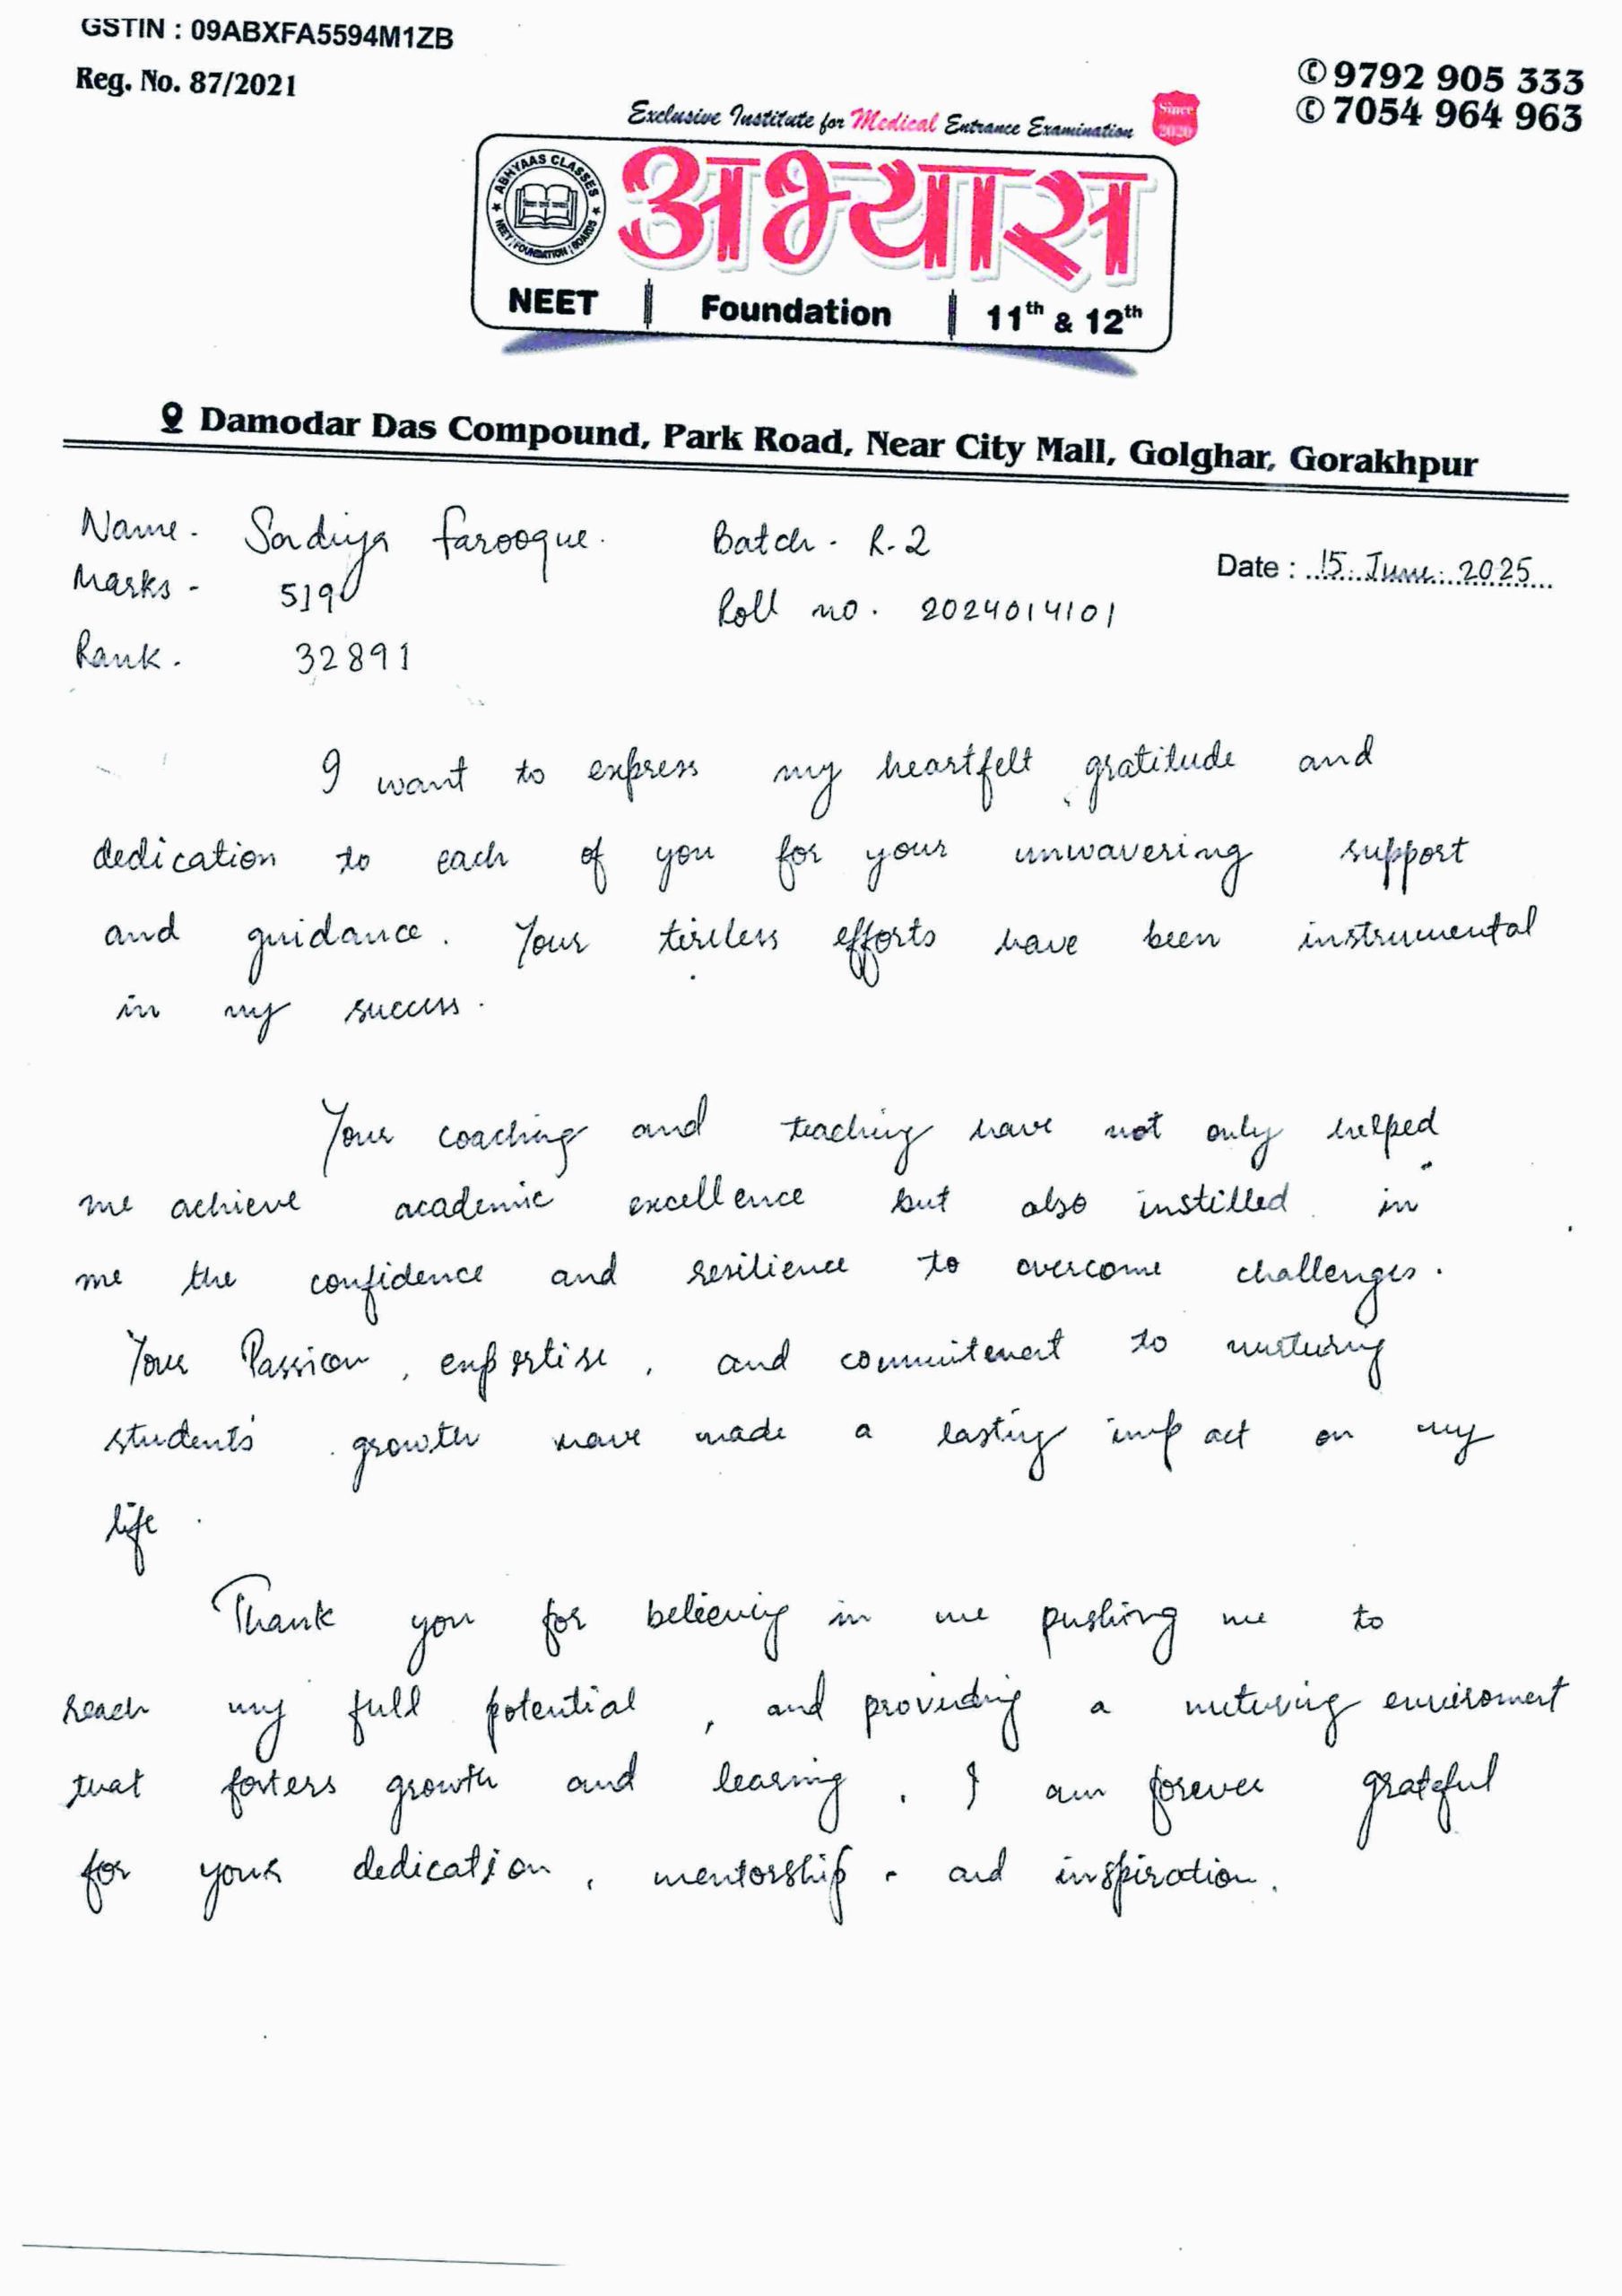 GSTIN : 09ABXFA5594M1ZB
Reg. No. 87/2021
✆ 9792 905 333
✆ 7054 964 963
Exclusive Institute for Medical Entrance Examination
Since 2020
ABHYAAS CLASSES
NEET | FOUNDATION | BOARDS
अभ्यास
NEET | Foundation | 11th & 12th
Damodar Das Compound, Park Road, Near City Mall, Golghar, Gorakhpur
Name - Sadiya Farooque. Batch - R-2
Date : 15 June 2025
Marks - 519
Roll no. 2024014101
Rank. 32891
I want to express my heartfelt gratitude and
dedication to each of you for your unwavering support
and guidance. Your tireless efforts have been instrumental
in my success.
Your coaching and teaching have not only helped
me achieve academic excellence but also instilled in
me the confidence and resilience to overcome challenges.
Your Passion, expertise, and commitement to nurturing
students' growth have made a lasting impact on my
life.
Thank you for believing in me pushing me to
reach my full potential, and providing a nuturing enviroment
that fosters growth and learing. I am forever grateful
for your dedication, mentorship, and inspiration.